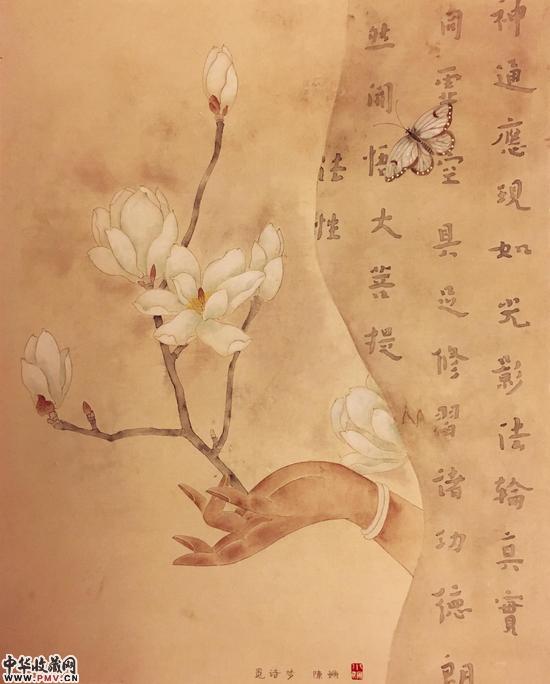 神通應現如光影法輪真實
同虛空具足修習諸功德朗
然開悟大菩提
法性
中华收藏网
www.PMV.CN